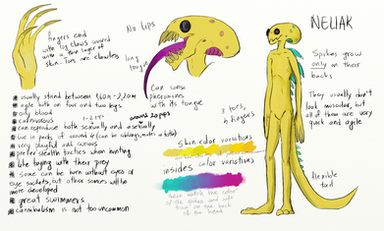 NELIAK
fingers end
with big claws around
with a thin layer of
skin. Toes are clawless
No lips
long
tongue
Can sense
pheromones
with its tongue
Spikes grow
only on their
backs
They usually don't
look muscular, but
all of them are very
quick and agile
flexible
tail
3 toes,
4 fingers
usually stand between 1,60m-2,20m
agile both on four and two legs
oily blood
carnivorous
can reproduce both sexually and asexually
live in packs of around
around 20 ppls
very playful and curious
prefer stealthy tactics when hunting
like toying with their prey
some can be born without eyes or
eye sockets, but other senses will be
more developed
great swimmers
cannibalism is not too uncommon
skin color variations
insides color variations
these match the color
of the spikes and also